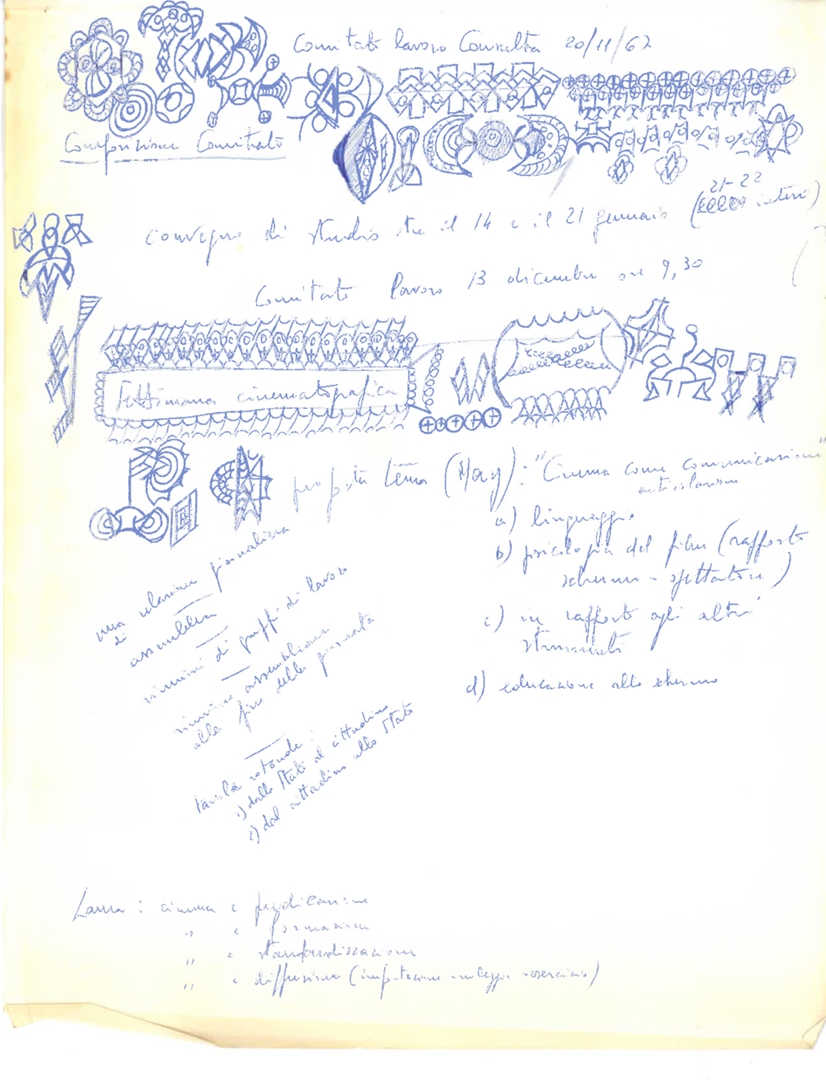 Comitato lavoro Consulta 20/11/62
Composizione Comitato
21-22
convegno di studio tra il 14 e il 21 gennaio (interi)
Comitato lavoro 13 dicembre ore 9,30
Settimana cinematografica
proposta tema (May): "Cinema come comunicazione"
a) linguaggio
b) psicologia del film (rapporto
schermo - spettatori)
c) in rapporto agli altri
strumenti
d) educazione allo schermo
una relazione giornaliera
di
assemblea
riunioni di gruppi di lavoro
riunione assembleare
alla fine della giornata
tavole rotonde:
1) dallo Stato al cittadino
2) dal cittadino allo Stato
Laura: cinema e
" e formazione
" e standardizzazione
" e diffusione (importazione - noleggio - esercizio)